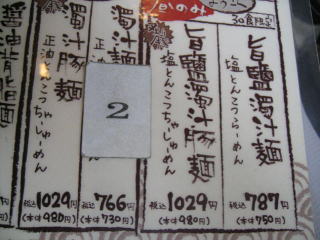 旬のみ
ようこそ
30食限定
旨鹽濁汁麺
塩とんこつらーめん
税込 787円
(本体750円)
旨鹽濁汁豚麺
塩とんこつちゃしゅーめん
税込 1029円
(本体980円)
濁汁麺
正油とん
税込 766円
(本体730円)
2
濁汁豚麺
正油とんこつちゃしゅーめん
税込 1029円
(本体980円)